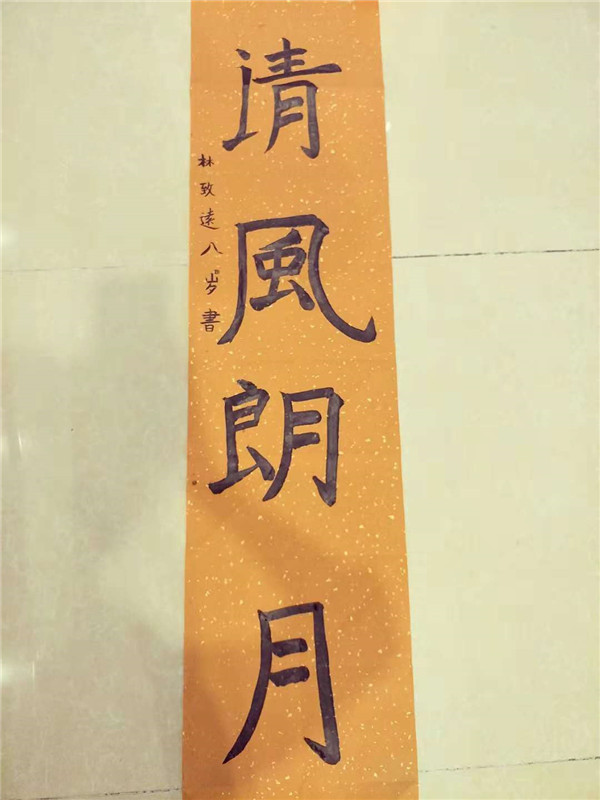 清風朗月
林致遠八岁書